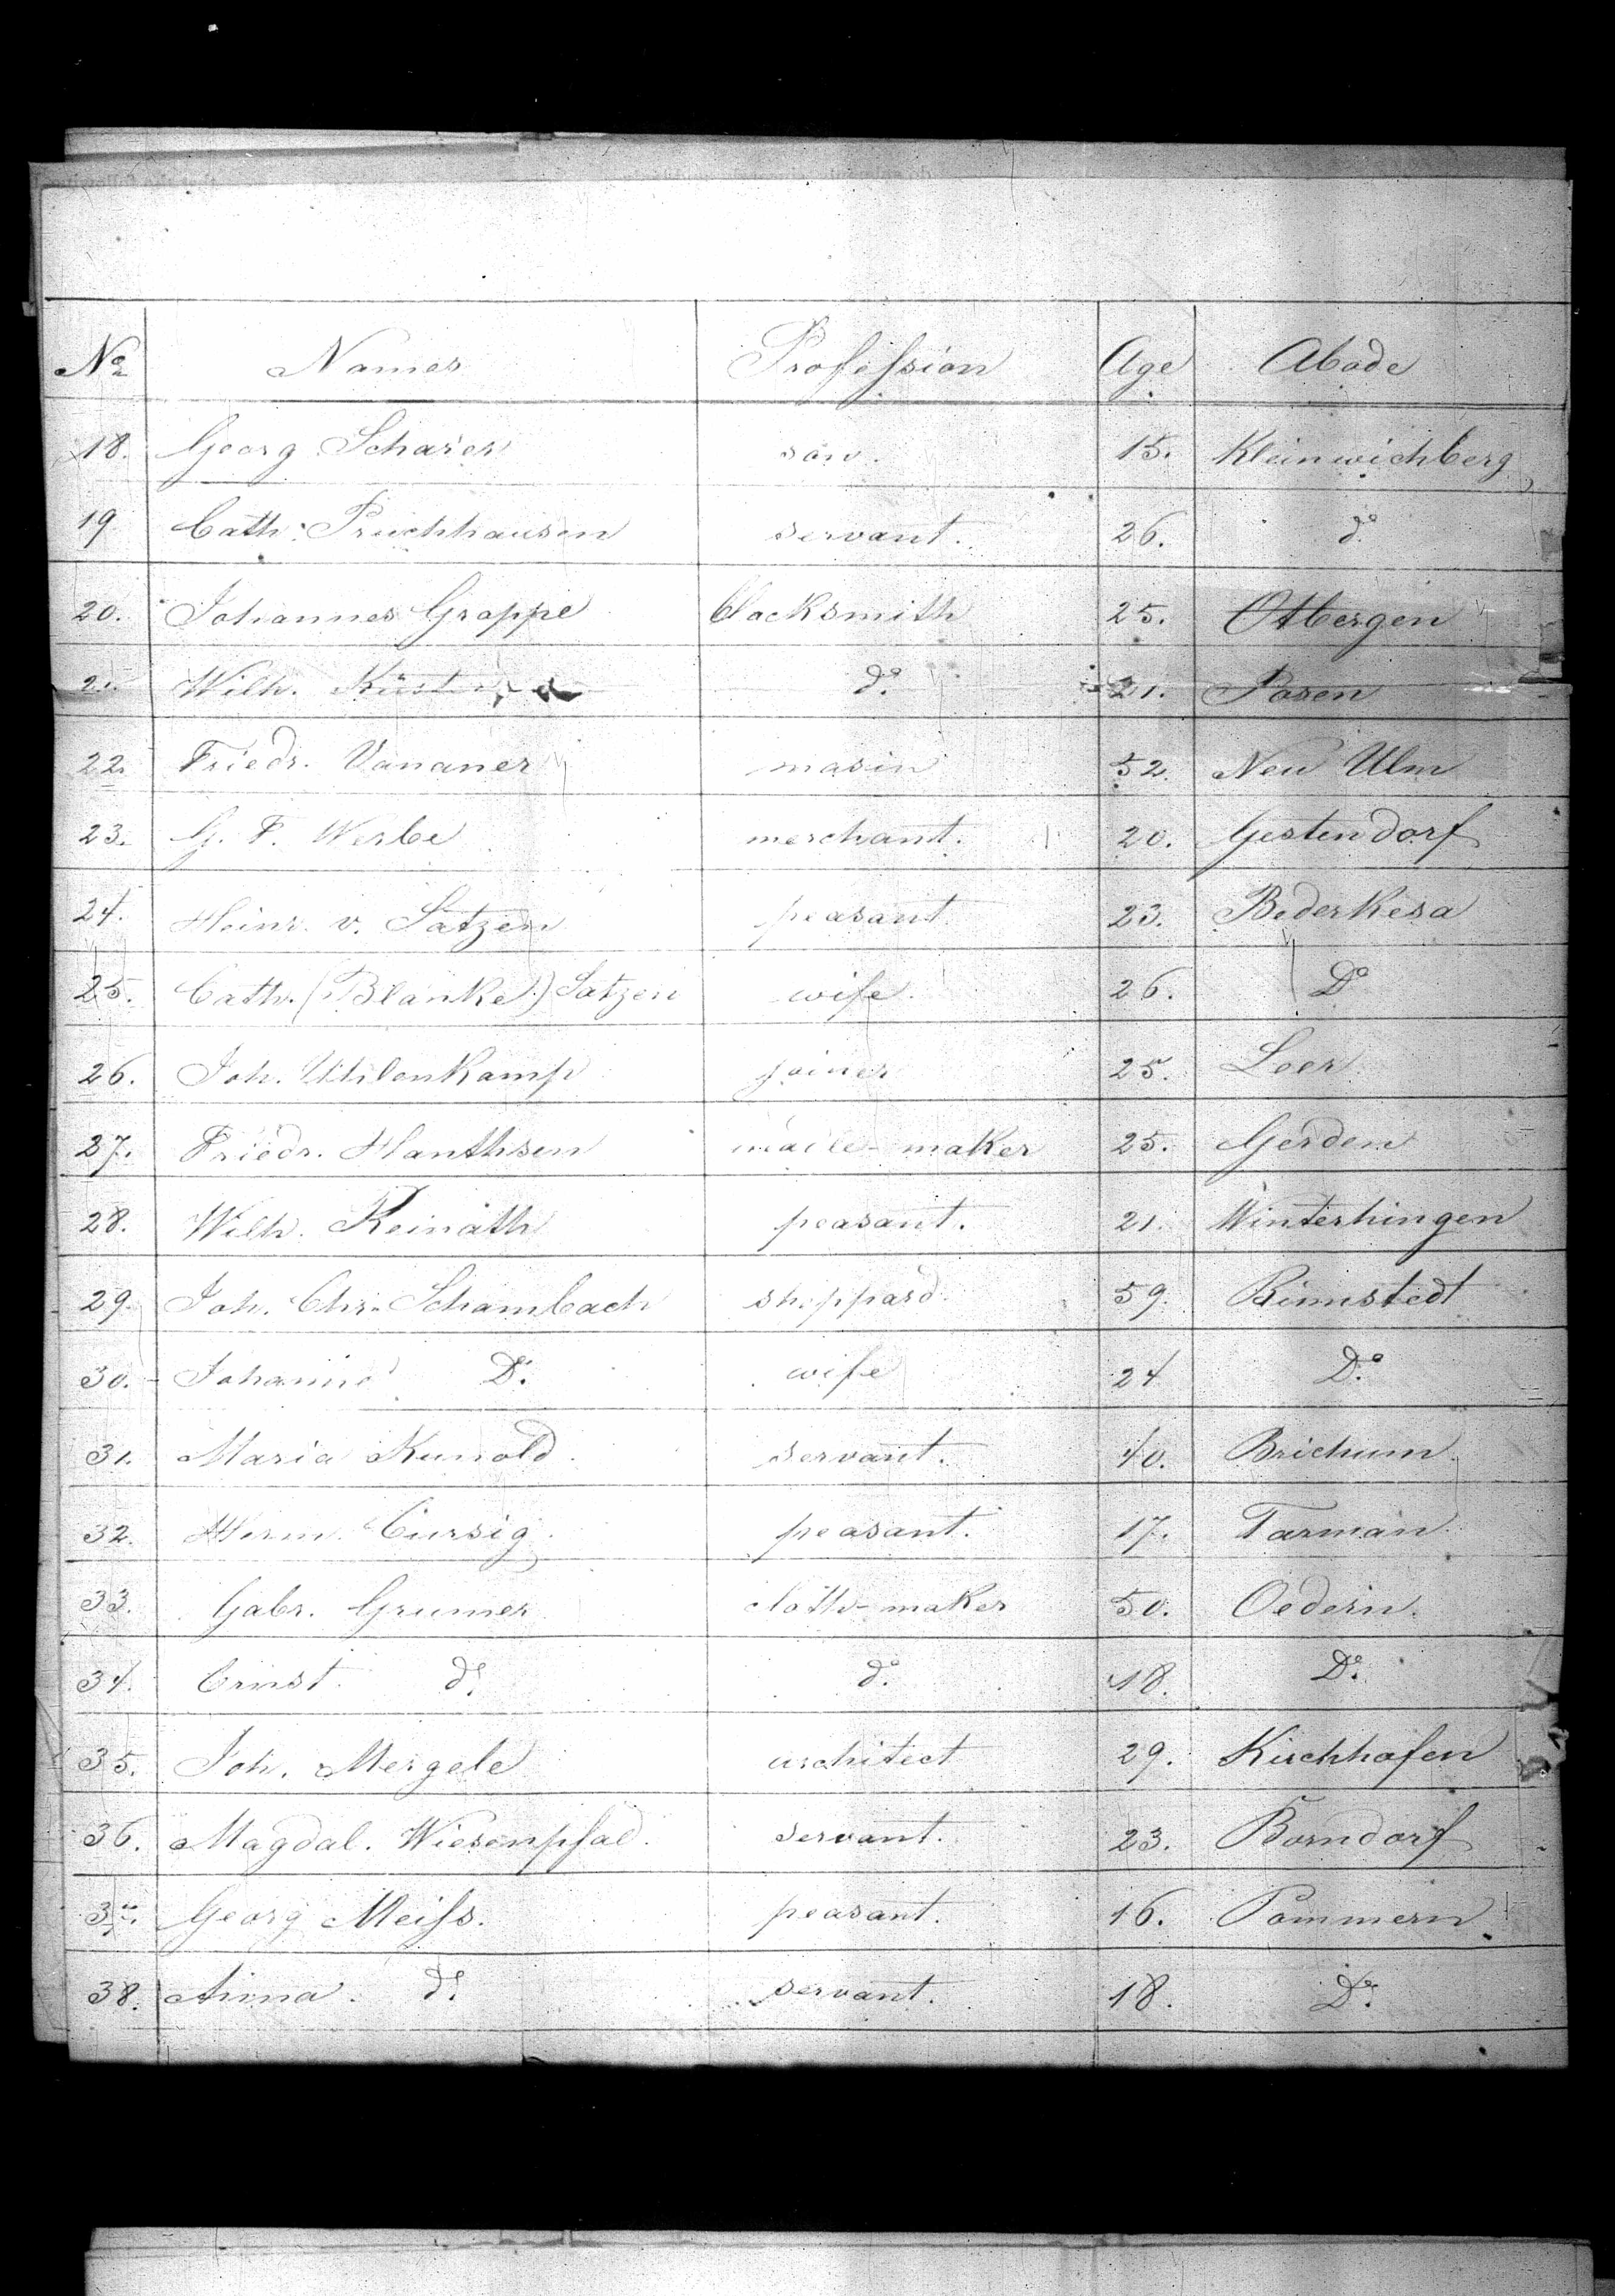 No Names Profession Age Abode
18. Georg Scharer son. 15. Kleinwichberg
19 Cath. Pruchhausen servant. 26. do
20. Johannes Grappe Clocksmith 25. Otbergen
21. Wilh. do. 21. Posen
22. Friedr. Vananer masin 52. Neu Ulm
23. G. F. Werbe merchant. 20. Gestendorf
24. Heinr. v. Satzen peasant 23. Bederkesa
25. Cath. (Blanke) Satzen wife. 26. Do
26. Joh. Uhlenkamp joiner 25. Leer.
27. Friedr. Hanthsen maker 25. Gerden
28. Wilh. Reinath peasant. 21. Winterhingen
29. Joh. Chr. Schambach sheppard. 59. Rimstedt
30. Johanne Do. wife 24 Do.
31. Maria Kunold. servant. 40. Brichum.
32. Herm. Cursig. peasant. 17. Tarman.
33. Gabr. Grumer cloth-maker 50. Oedern.
34. Ernst. do. do. 18. Do.
35. Joh. Mergele architect 29. Kirchhofen
36. Magdal. Wiesenpfad. servant. 23. Borndorf
37. Georg Meiss. peasant. 16. Pommern
38. Anna. do. servant. 18. Do.